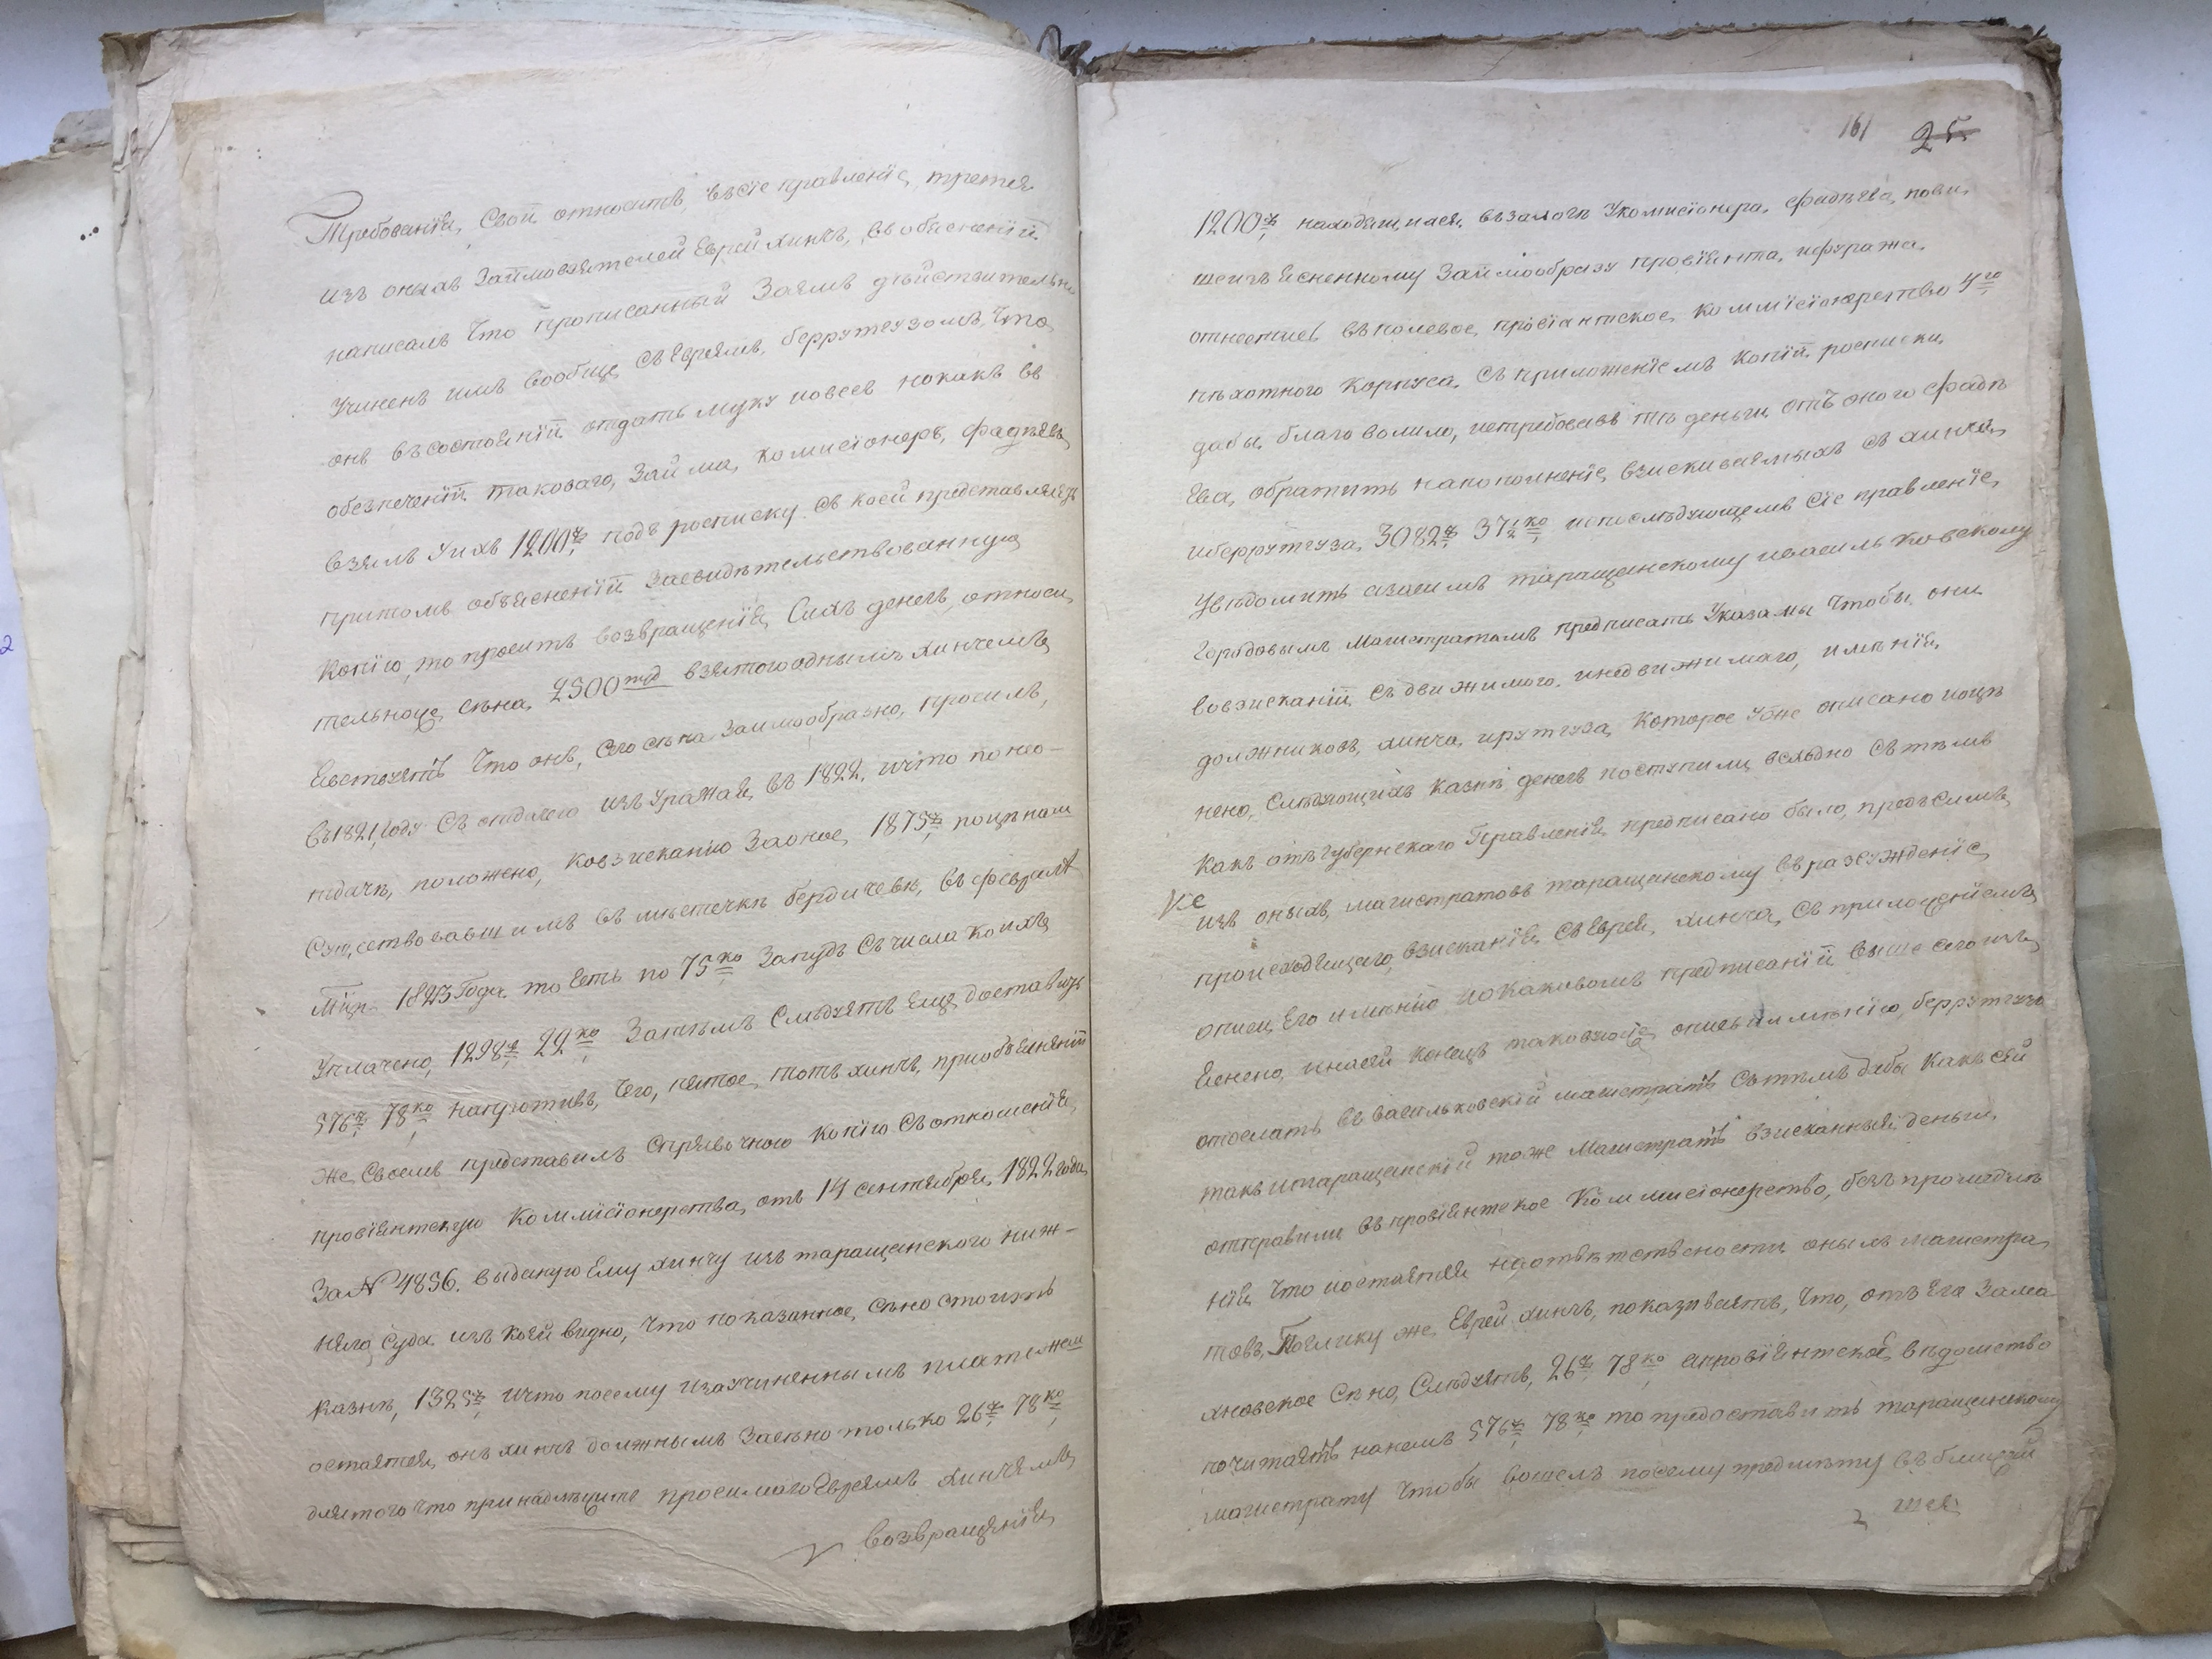 Требованія, Свой относитъ, въ сіе правленіе, третей
изъ оныхъ Займовзятелей Еврей Хинчъ, въ обясненій
написалъ Что прописанный Заемъ дѣйствительно
Учиненъ имъ вообще съ Евреемъ, беррутгузомъ, Что
онъ въ состояній отдать муку и овесъ но какъ въ
обезпеченій таковаго, Займа, комисіонеръ, фадѣевъ
взялъ у нихъ 1200 р подъ росписку съ коей представляетъ
притомъ объясненій Засвидѣтельствованную
Копію, то проситъ возвращенія, Сихъ денегъ, относи
тельноже сѣна, 2500 пуд взятого однымъ хинчемъ
Евствуетъ Что онъ, сего сѣна Заимообразно, просилъ,
въ 1821 году Съ отдачею изъ Уражая, въ 1822, и что по нео-
тдачѣ, положено, ко взисканію За оное, 1875 р по цѣнам
Существовавшимъ въ мѣстечкѣ бердичевѣ, въ февралѣ
Мцѣ 1823 Года то есть по 75 ко За пудъ Съ числа коихъ
Уплачено, 1298 р 22 ко Затѣмъ Слѣдуетъ Еще доставить
576 р 78 ко напротивъ, Чего, пятое, тотъ хинчъ, приобъясненій
же Своемъ представилъ Справочного копію Съ отношенія,
провіянтскую Коммісіонерства, отъ 14 сентября, 1822 года
За № 4856. выданую Ему хинчу изъ таращанского ниж-
няго Суда изъ коей видно, Что показанное, сѣно стоитъ
казнѣ, 1325 р и что посему и за учиненнымъ платежем
остается, онъ хинчъ должнымъ За сѣно только 26 р 78 ко
для того что принадлѣжите просимаго Евреемъ хинчемъ
возвращенія
161 25
1200 р находящихся, въ залогѣ У комисіонера, фадѣева, по вы
шеизъясненному Займообразу провіянта, и фуража
отнестись въ полевое, провіантское, коммісіонерство 4го
пѣхотного Корпуса, Съ приложеніемъ Копій росписки,
дабы, благоволило, истребовавъ тѣ деньги, отъ оного фадѣ
Ева, обратить на пополненіе, взискиваемыхъ Съ хинча
и беррутгуза, 3082 р 37½ ко и о послѣдующемъ Сіе правленіе,
Увѣдомить а засимъ таращанскому и васильковскому
Городовымъ Магистратамъ предписать Указами Чтобы они
во взисканій Съ движимого, и недвижимаго, имѣнія,
должниковъ, хинча, и рутгуза, Которое Уже описано и оцѣ
нено, Слѣдующихъ казнѣ денегъ поступили, вслѣдно Съ тѣмъ
Какъ отъ Губернскаго Правленія, предписано было, предъ симъ,
изъ оныхъ, магистратовъ таращанскому въ разсужденіе,
Ке
происходящаго, взисканія, Съ Еврея, хинча, Съ приложеніемъ
описи, Его имѣнію, по Каковомъ предписаній выше сего изъ
яснено, и на сей Конецъ таковуюже опись имѣнію, беррутгуза
отослать въ васильковскій магистратъ Съ тѣмъ дабы Какъ сей
такъ и таращанскій тоже Магистратъ взисканныя деньги,
отправили въ провіянтское Коммисіонерство, безъ промедлѣ
нія Что и остается на отвѣтствености оныхъ магистра
товъ, Поелику же, Еврей хинчъ, показиваетъ, Что, отъ Его За ма
хновское Сѣно, Слѣдуетъ, 26 р 78 ко а провіянтское, вѣдомство
почитаетъ на немъ 576 р 78 ко то предоставить таращанскому
магистрату Чтобы вошелъ по сему предмѣту въ ближай
шея